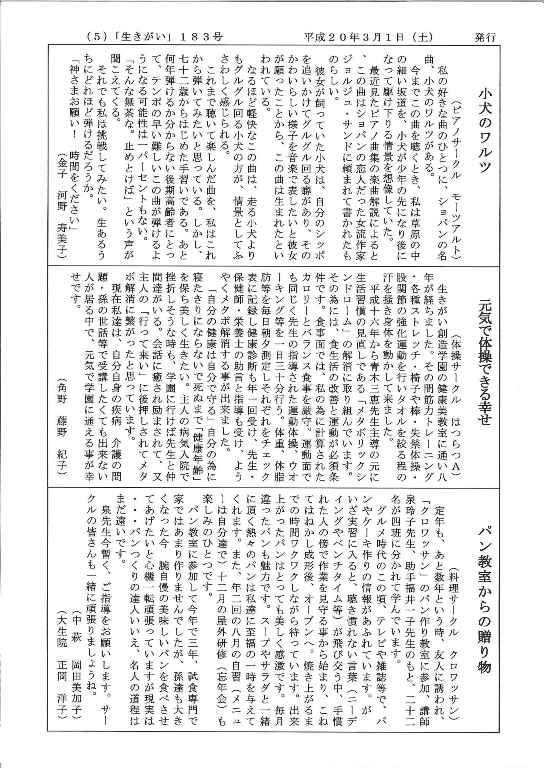 （5）「生きがい」183号　平成20年3月1日（土）　発行
小犬のワルツ
（ピアノサークル　モーツアルト）
私の好きな曲のひとつに、ショパンの名
曲、小犬のワルツがある。
今までこの曲を聴くとき、私は草原の中
の細い坂道を、小犬が少年の先になり後に
なって駆け下りる情景を想像していた。
最近見たピアノ曲集の楽曲解説によると
、この曲はショパンの恋人だった女流作家
ジョルジュ・サンドに頼まれて書かれたも
のらしい。
彼女が飼っていた小犬は、自分のシッポ
を追いかけてグルグル回る癖があり、その
かわいらしい様子を音楽で表したいと彼女
が願ったことから、この曲は生まれたとい
われている。
なるほど軽快なこの曲は、走る小犬より
もグルグル回る小犬の方が、情景としてふ
さわしく感じられる。
これまで聴いて楽しんだ曲を、私はこれ
から弾いてみたいと思っている。しかし、
七十二歳からはじめた手習いである。あと
何年弾けるか分からない後期高齢者にとっ
て、テンポの早い難しいこの曲が弾けるよ
うになる可能性は一パーセントもない。
「そんな無茶な。止めとけば」という声が
聞こえてくる。
それでも私は挑戦してみたい。生あるう
ちにどれほど弾けるだろうか。
「神さまお願い！　時間をください」
（金子　河野　寿美子）
元気で体操できる幸せ
（体操サークル　はつらつA）
生きがい創造学園の健康美教室に通い八
年が経ちました。その間筋力トレーニング
・各種ストレッチ・椅子や棒・失禁体操・
股関節の強化運動を行いタオルを絞る程の
汗を掻き身体を動かして来ました。
平成十六年から青木三恵先生主導の元に
生活習慣の見直しである「メタボリックシ
ンドローム」の解消に取り組んでいます。
その為には、食生活の改善と運動が必須条
件です。食事面では、私の為に計算された
カロリーとバランス食事を厳守。運動面で
も同じく先生の指導された運動体操、ウオ
ーキング等を一日三十分行う。体重、体脂
肪等を毎日朝夕測定しそれぞれをチェック
表に記録し健康診断も年一回受け、先生・
保健師・栄養士の助言と指導も受け、よう
やくメタボ解消する事が出来ました。
「自分の健康は自分で守る」自分の為に
寝たきりにならないで死ぬまで「健康年齢」
を保ち美しく生きたい。主人の病気入院で
挫折しそうな時も、学園に行けば先生と仲
間達がいる。会話に癒され励まされて、又
主人の「行って来い」に後押しされてメタ
ボ解消に繋がったと思っています。
現在私達は、自分自身の疾病、介護の問
題・孫の世話等で受講したくても出来ない
人が居る中で、元気で学園に通える事が幸
せです。
（角野　藤野　紀子）
パン教室からの贈り物
（料理サークル　クロワッサン）
定年も、あと数年という時、友人に誘われ、
「クロワッサン」のパン作り教室に参加、講師
泉玲子先生、助手福井一子先生のもと、二十二
名が四班に分かれて学んでいます。
グルメ時代のこの頃、テレビや雑誌等で、パ
ンやケーキ作りの情報があふれています。が、
いざ実習に入ると、聴き慣れない言葉（ニーデ
イングやベンチタイム等）が飛び交う中、手慣
れた人の傍で作業を見守る事から始まり、こね
てはねかし成形後、オーブンへ。焼き上がるま
での時間ワクワクしながら待っています。出来
上がったパンはとっても美しく感激です。毎月
違ったパンも魅力です。スープやサラダと一緒
に頂く熱々のパンは私達に至福の一時を与えて
くれます。また、年二回の八月の自習（メニュ
ーは自分達で）十二月の屋外研修（忘年会）も
楽しみのひとつです。
パン教室に参加して今年で三年、試食専門で
家ではあまり作りませんでしたが、孫達も大き
くなった今、腕自慢の美味しいパンを食べさせ
てあげたいと心機一転頑張っていますが現実は
・・・パンつくりの達人いいえ、名人の道程は
まだ遠いです。
泉先生今暫く、ご指導をお願いします。サー
クルの皆さんも一緒に頑張りましょうね。
（中萩　岡田美加子）
（大生院　正岡　洋子）